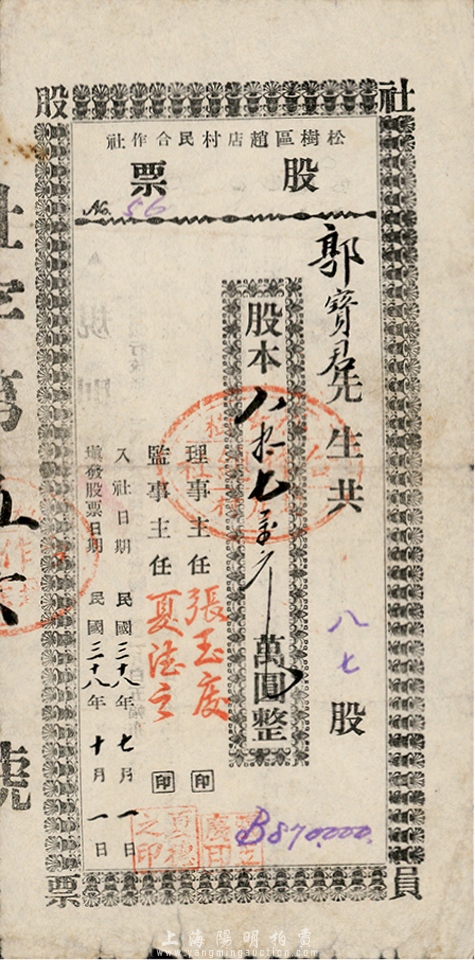 社
股
員
票
松樹區趙店村民合作社
股票
No. 56
郭寶君先生共
八七股
股本八拾七萬元
萬圓整
B870,000.
理事主任 張玉慶 印
監事主任 夏德之 印
入社日期 民國三十八年 七月 一日
填發股票日期 民國三十八年 十月 一日
夏德之印
社字第五六號
上海陽明拍賣
www.yangmingauction.com